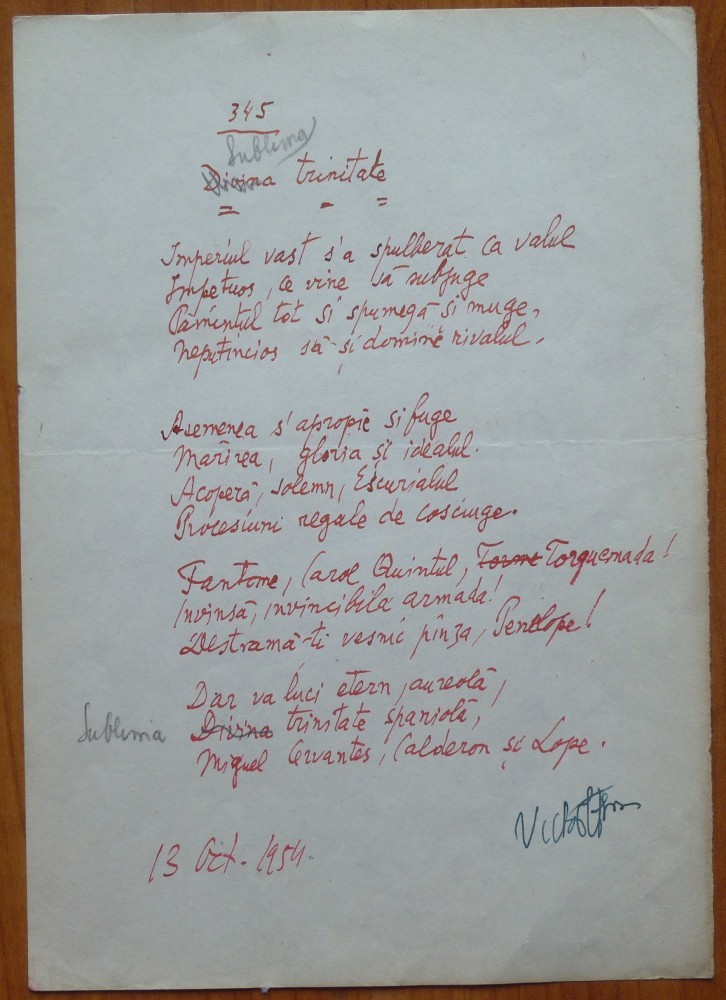 345
Sublima
Divina trinitate
Imperiul vast s'a spulberat ca valul
Impetuos, ce vine să subjuge
Pămîntul tot și spumegă și muge,
Neputincios să-și domine rivalul.
Asemenea s'apropie și fuge
Mărirea, gloria și idealul.
Acoperă, solemn, Escurialul
Procesiuni regale de cosciuge.
Fantome, Carol Quintul, Torme Torquemada!
Invinsă, invincibila armada!
Destramă-ti vesnic pînza, Penelope!
Dar va luci etern, aureolă,
Sublima Divina trinitate spaniolă,
Miguel Cervantes, Calderon și Lope.
13 Oct. 1954.